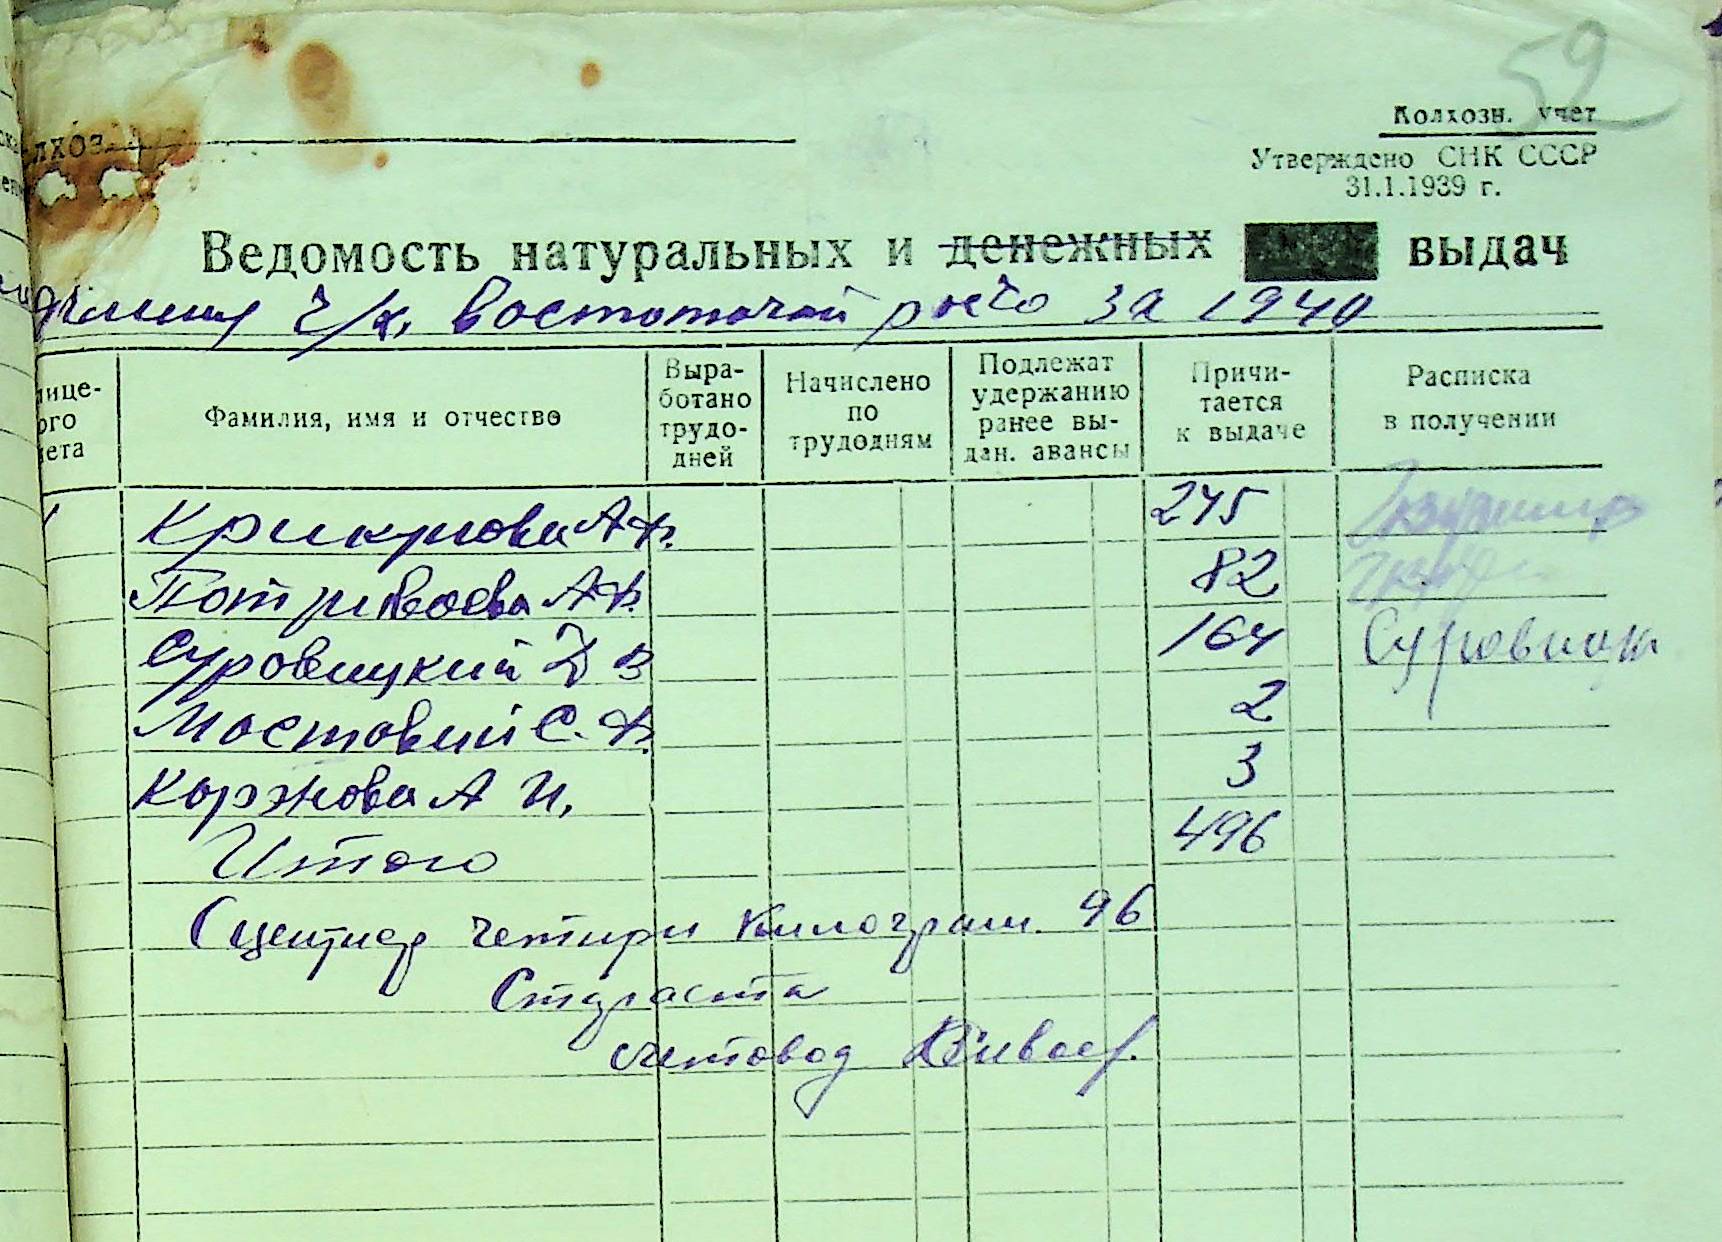 59
Колхозн. учет
лхоз
Утверждено СНК СССР
31.1.1939 г.
Ведомость натуральных и денежных выдач
ч/х. Восточной за 1940
лице-
ого
чета
Фамилия, имя и отчество
Выра-
ботано
трудо-
дней
Начислено
по
трудодням
Подлежат
удержанию
ранее вы-
дан. авансы
Причи-
тается
к выдаче
Расписка
в получении
Крикунова А Ф. 245
А Ф. 82
Суровицкий Д В 164 Суровицк
Мостовий С. Ф. 2
Коржова А И. 3
Итого 496
четири килограм. 96
Староста
счетовод